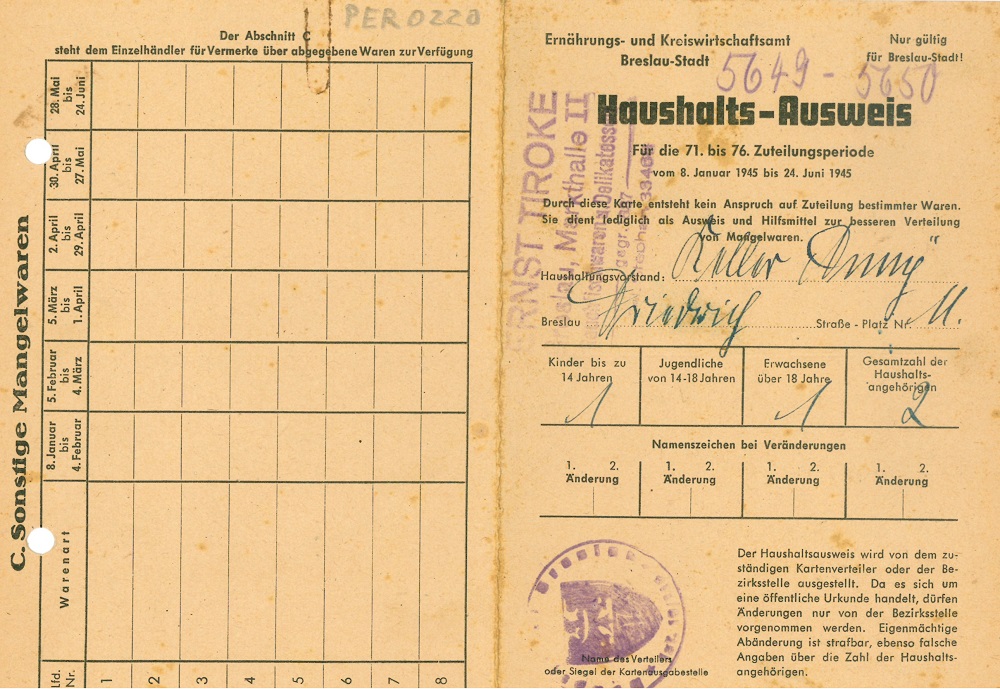 PER 0220
Der Abschnitt C
steht dem Einzelhändler für Vermerke über abgegebene Waren zur Verfügung
C. Sonstige Mangelwaren
28. Mai
bis
24. Juni
30. April
bis
27. Mai
2. April
bis
29. April
5. März
bis
1. April
5. Februar
bis
4. März
8. Januar
bis
4. Februar
Warenart
Lfd.
Nr.
1 2 3 4 5 6 7 8
Ernährungs- und Kreiswirtschaftsamt
Breslau-Stadt
Nur gültig
für Breslau-Stadt!
5649 - 5650
Haushalts-Ausweis
Für die 71. bis 76. Zuteilungsperiode
vom 8. Januar 1945 bis 24. Juni 1945
Durch diese Karte entsteht kein Anspruch auf Zuteilung bestimmter Waren.
Sie dient lediglich als Ausweis und Hilfsmittel zur besseren Verteilung
von Mangelwaren.
ERNST TIROKE
Breslau, Markthalle II
Haushaltungsvorstand: Keller
Breslau Friedrich Straße - Platz Nr. 11.
Kinder bis zu
14 Jahren
1
Jugendliche
von 14-18 Jahren
Erwachsene
über 18 Jahre
1
Gesamtzahl der
Haushalts-
angehörigen
2
Namenszeichen bei Veränderungen
1. 2.
Änderung
1. 2.
Änderung
1. 2.
Änderung
1. 2.
Änderung
Name des Verteilers
oder Siegel der Kartenausgabestelle
Der Haushaltsausweis wird von dem zu-
ständigen Kartenverteiler oder der Be-
zirksstelle ausgestellt. Da es sich um
eine öffentliche Urkunde handelt, dürfen
Änderungen nur von der Bezirksstelle
vorgenommen werden. Eigenmächtige
Abänderung ist strafbar, ebenso falsche
Angaben über die Zahl der Haushalts-
angehörigen.